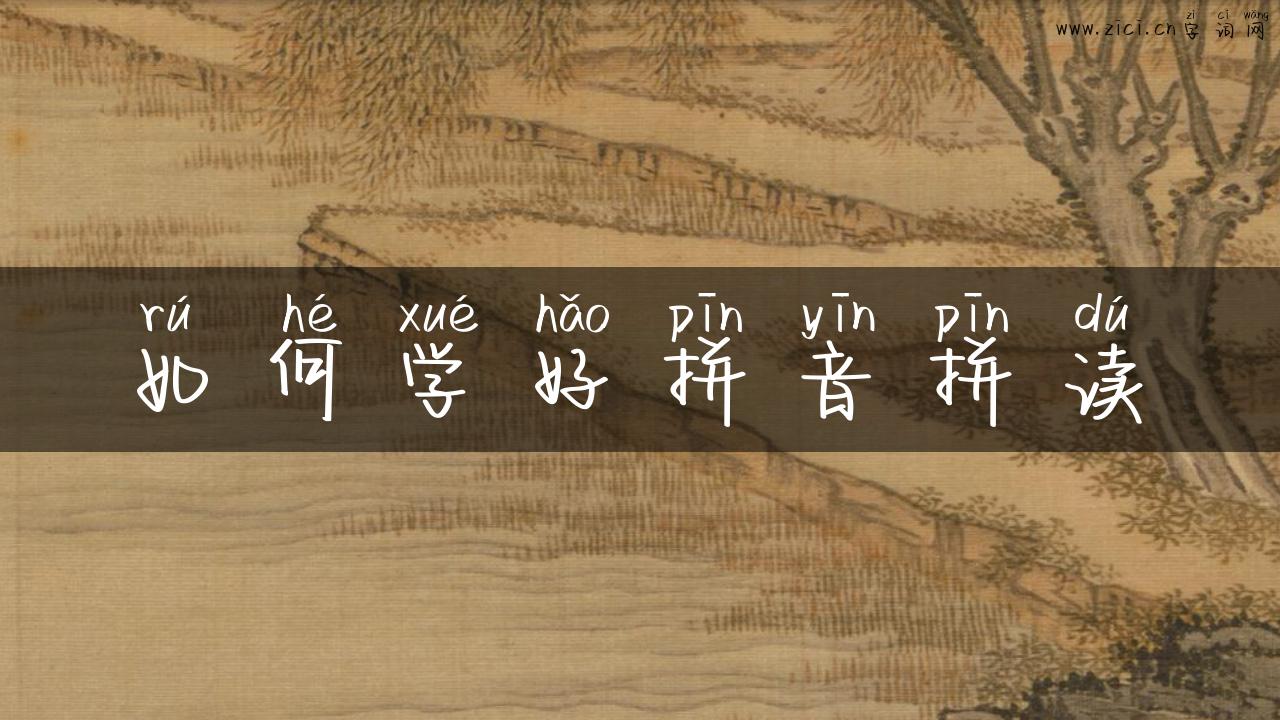 zì cí wǎng
www.zici.cn字词网
rú hé xué hǎo pīn yīn pīn dú
如何学好拼音拼读